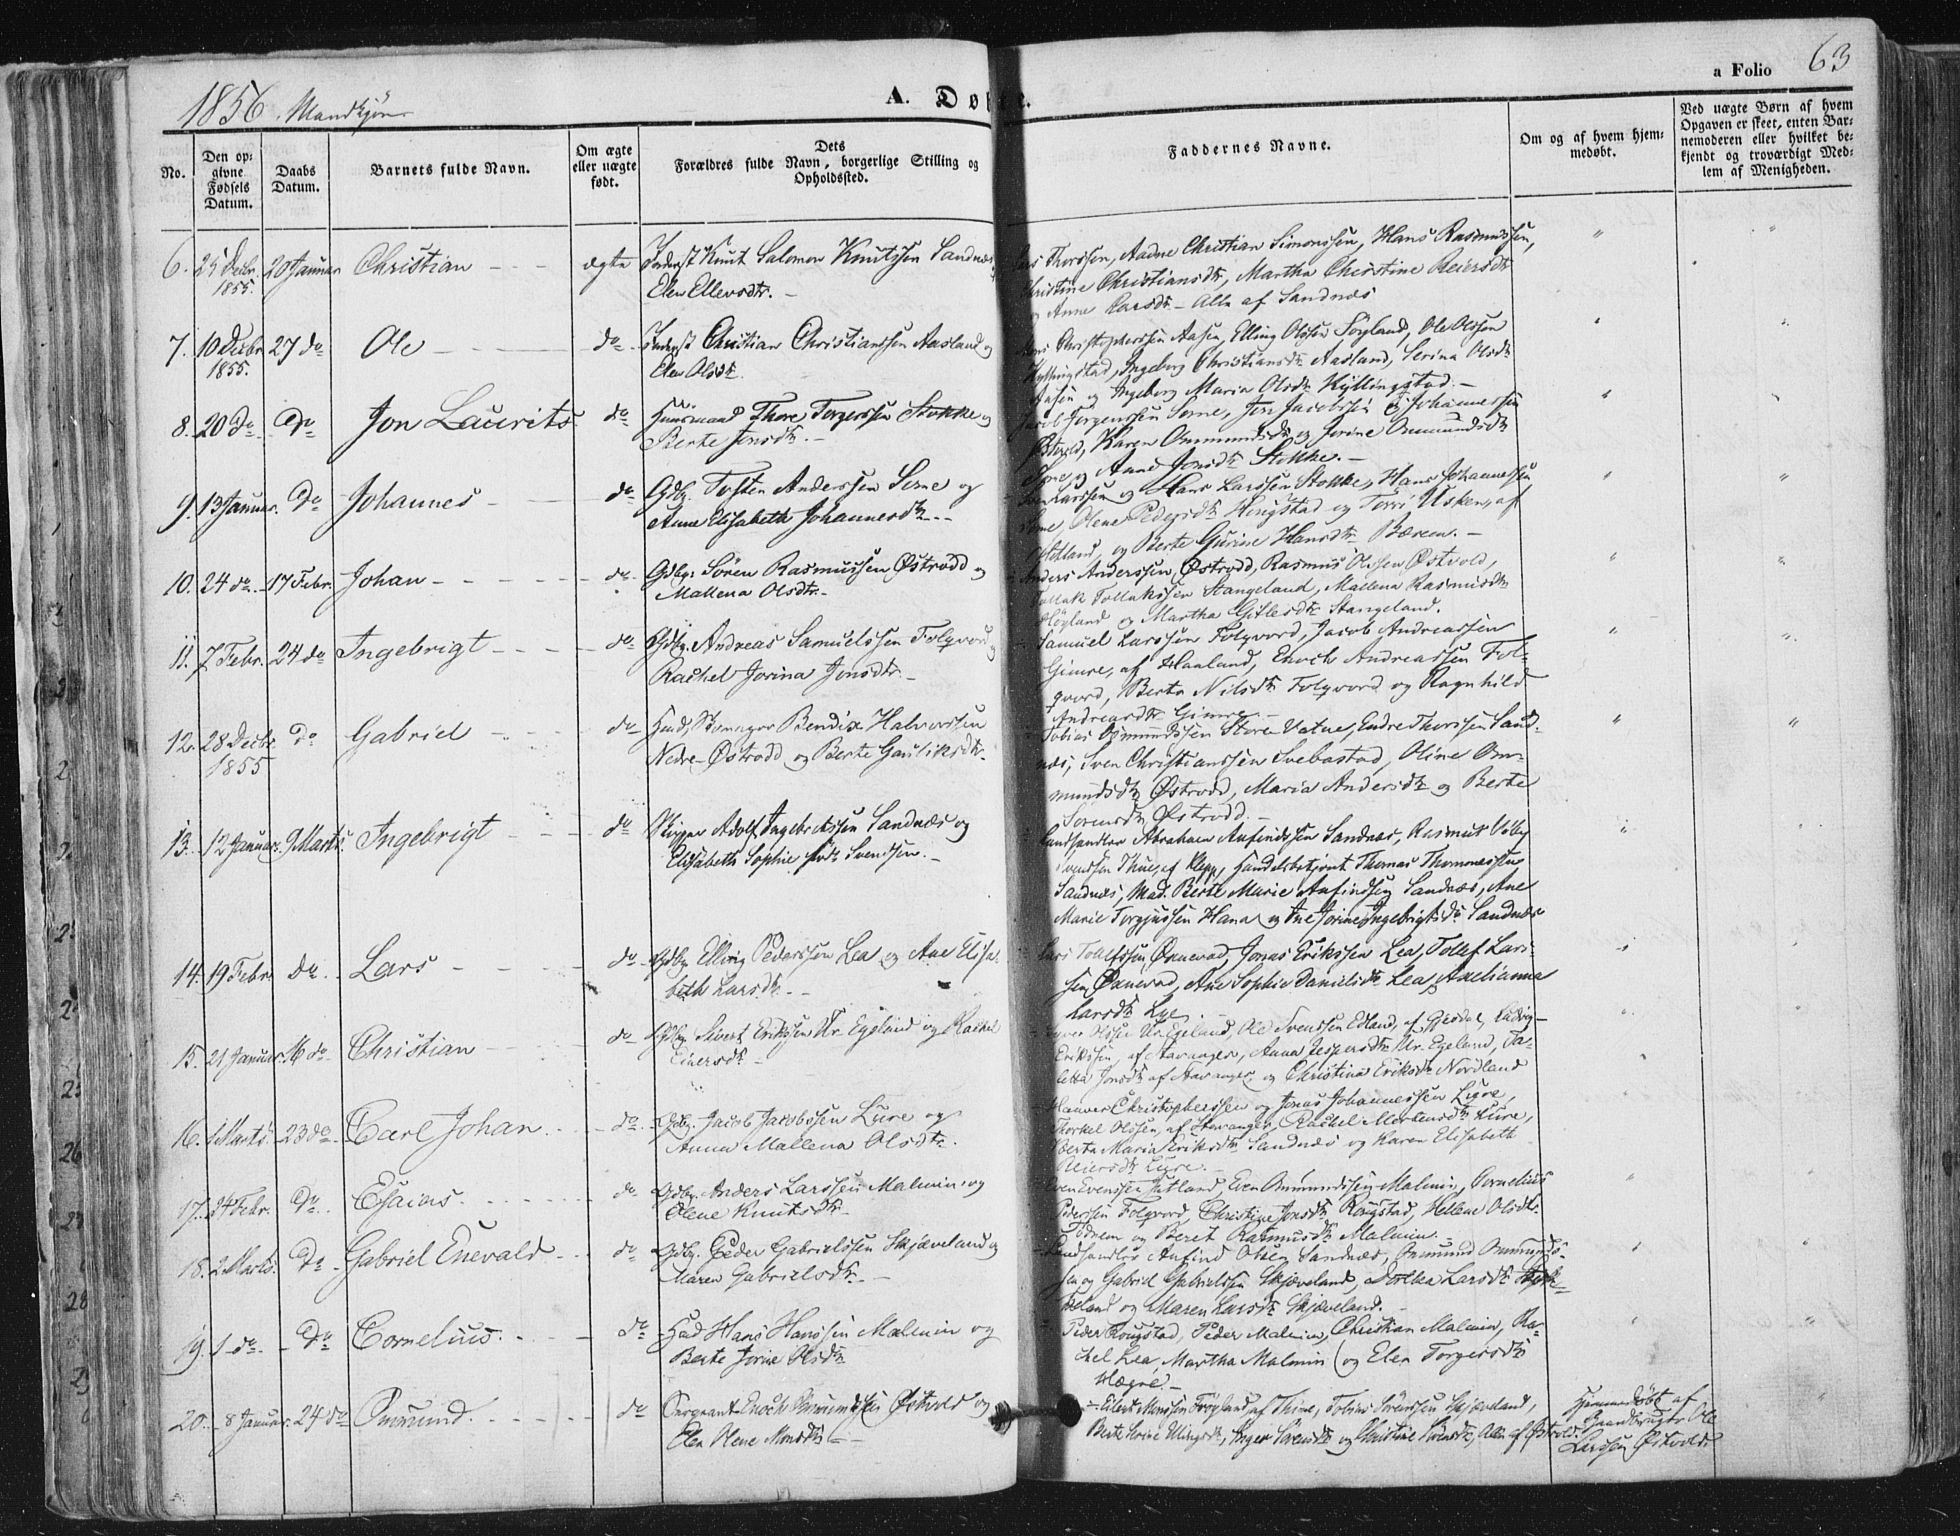 1856. Mandkjøn
A. Døbte.
a Folio 63
No.
Den opgivne Fødsels Datum.
Daabs Datum.
Barnets fulde Navn.
Om ægte eller uægte født.
Dets Forældres fulde Navn, borgerlige Stilling og Opholdssted.
Faddernes Navne.
Om og af hvem hjemmedøbt.
Ved uægte Børn af hvem Opgaven er skeet, enten Barnemoderen eller hvilket bekjendt og troværdigt Medlem af Menigheden.
6. 25 Decbr. 1855. 20 Januar Christian ægte Inderst Knut Salomon Knutssen Sandnæs
Elen Ellevsdtr.
Lars Thorssen, Aadne Christian Simonssen, Hans Rasmussen,
Christine Christiansdtr, Martha Christine Reiersdtr
og Anne Larsdtr - Alle af Sandnæs
7. 10 Decbr 1855. 27 do Ole do Inderst Christian Christianssen Aasland og
Elen Olsdtr.
Christophersen Aasen, Elling Olssen Søyland, Ole Olssen
Kyllingstad, Ingeborg Christiansdtr Aasland, Serina Olsdtr
Aasen og Ingeborg Maria Olsdtr Kyllingstad.
8. 20 do do Jon Laurits do Huusmand Thore Torgerssen Stokke og
Berte Jonsdtr.
Jacob Jorgenssen Sørne, Jon Jacobssen og Johannessen
Østvold, Karen Ommundsdtr og Jorine Ommundsdtr
og Anne Jonsdtr Stokke.
9. 13 Januar. do Johannes do Gdbg. Torsten Anderssen Sørne og
Anne Elisabeth Johannesdtr.
Larssen og Hans Larssen Stokke, Hans Johannessen
Olene Pedersdtr Hingstad og Torri Usken, af
Hetland, og Berte Gurine Hansdtr Bærem.
10. 24 do 17 Febr. Johan do Gdbg: Sören Rasmussen Østrådd og
Mallena Olsdtr.
Anders Anderssen Østrådd, Rasmus Olssen Østvold,
Tollak Tollakssen Stangeland, Mallena Rasmusdtr
Høyland og Martha Gitlesdtr Stangeland.
11. 7 Febr. 24 do Ingebrigt do Gdbg. Andreas Samuelssen Folqvord og
Rachel Jorina Jonsdtr.
Samuel Larssen Folqvord, Jacob Andreassen
Gimre, af Haaland, Enoch Andreassen Fol-
qvord, Berta Nilsdtr Folqvord og Ragnhild
Andreasdtr Gimre.
12. 28 Decbr. 1855 do Gabriel do Bendix Halvorssen
Nedre Østrådd og Berte Gauliksdtr.
Tobias Osmundssen Store Vatne, Endre Thorssen Sand-
næs, Sven Christianssen Svebastad, Oline Om-
mundsdtr Østrådd, Maria Andersdtr og Berte
Sörensdtr Østrådd.
13. 12 Januar. 9 Marts. Ingebrigt do Skipper Adolf Ingebretssen Sandnæs og
Elisabeth Sophie født Svendsen.
Landhandler Abraham Anfindssen Sandnæs, Rasmus Volby
Svendsen Thue, af Klepp, Handelsbetjent Thomas Thommessen
Sandnæs, Mad. Berte Marie Anfindsen Sandnæs, Ane
Marie Torgjussen Hana og Ane Jorine Ingebrigtsdr Sandnæs
14. 19 Febr. do Lars do Gdbg Elling Pederssen Lea og Ane Elisa-
beth Larsdtr.
Lars Tollefssen Øxnevad, Jonas Erikssen Lea, Tollef Lars-
sen Øxnevad, Ane Sophie Danielsdtr Lea, Axelianna
Larsdtr Lye
15. 21 Januar. 16 do Christian do Gdbg Sivert Erikssen Nr. Egeland og Rachel
Einersdtr
Olssen Nr. Egeland, Ole Svenssen Edland, af Gjesdal, Ludvig
Erikssen, af Stavanger, Anna Jespersdtr Nr. Egeland, Ta-
letta Jonsdtr af Stavanger, og Christina Eriksdtr Nordland
16. 1 Marts. 23 do Carl Johan. do Gdbg. Jacob Jacobssen Lure og
Anna Mallena Olsdtr.
Haaver Christopherssen og Jonas Johannessen Lure,
Thorkel Olssen, af Stavanger, Rachel Mortensdtr Lure,
Berta Maria Eriksdtr Sandnæs og Karen Elisabeth
Reiersdtr Lure.
17. 24 Febr. do Esaias. do Gdbg. Anders Larssen Malmin og
Olene Knutsdtr.
Even Evenssen Jutland, Even Ommundssen Malmin, Cornelius
Pederssen Folqvord, Christine Jonsdtr Rougstad, Hellene Olsdtr
og Beret Rasmusdtr Malmin.
18. 2 Marts. do Gabriel Enevald do Gdbg. Peder Gabrielssen Skjæveland og
Maren Gabrielsdtr.
Landhandler Anfind Olsen Sandnæs, Ommund Ommunds-
sen og Gabriel Gabrielssen Skjæveland, Dorthea Larsdtr
land og Maren Larsdtr Skjæveland.
19. 1 do do Cornelius. do Hans Hanssen Malmin og
Berte Jorine Olsdtr
Peder Rougstad, Peder Malmin, Christian Malmin, Ra-
chel Lea, Martha Malmin og Elen Torgersdtr
Hægre.
20. 8 Januar. 24 do Ommund. do Sergeant Enoch Ommundssen Østvold og
Elen Olene Monsdtr
Eilert Monssen Forgland, af Thime, Tobias Sörenssen Skjæveland,
Berte Serine Ellingsdtr, Inger Sörensdtr og Christine Sörensdtr, Alle af Østvold.
Hjemmedøbt af
Gaardbruger Ole
Larssen Østvold.